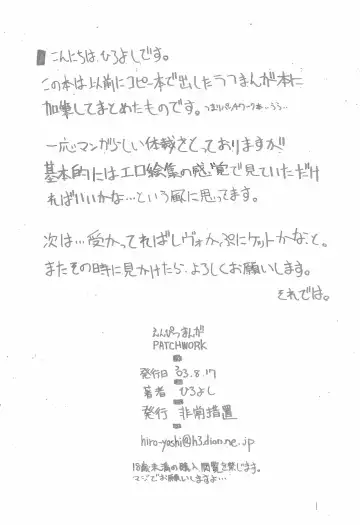 こんにちは、ひろよしです。
この本は以前にコピー本で出したラフまんが本に
加筆してまとめたものです。つまりパッチワーク本…ううう…
一応マンガらしい体裁をとっておりますが
基本的にはエロ絵集の感覚で見ていただけ
ればいいかな…という風に思ってます。
次は…受かってればレヴォか、次にケットかな…と。
またその時に見かけたら、よろしくお願いします。
それでは。
えんぴつまんが
PATCHWORK
発行日 '03.8.17
著者 ひろよし
発行 非常措置
hiro-yoshi@h3.dion.ne.jp
18歳未満の購入、閲覧を禁じます。
マジでお願いしますよ…
1